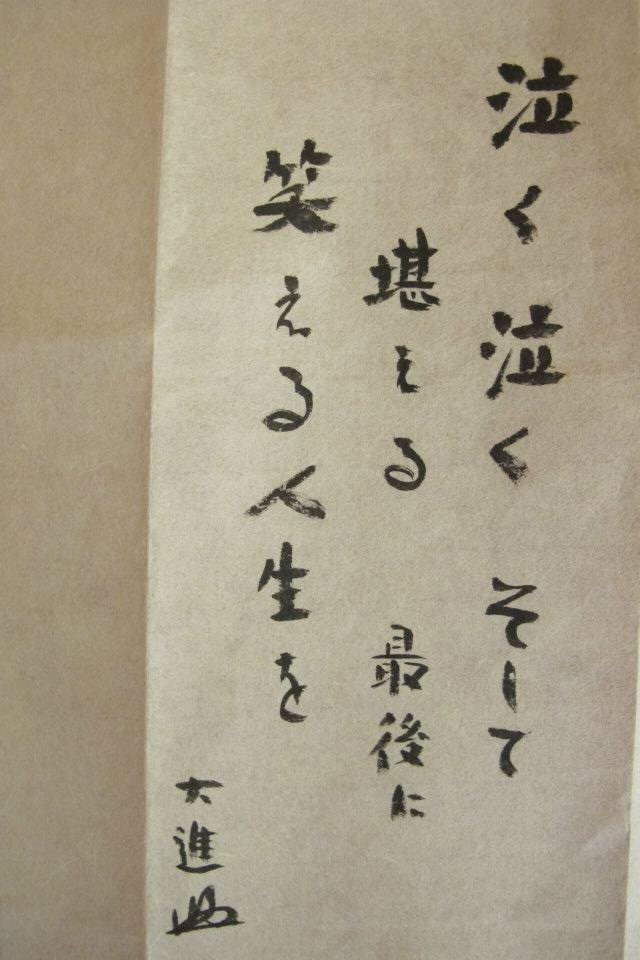 泣く泣く そして
堪える 最後に
笑える人生を
大進